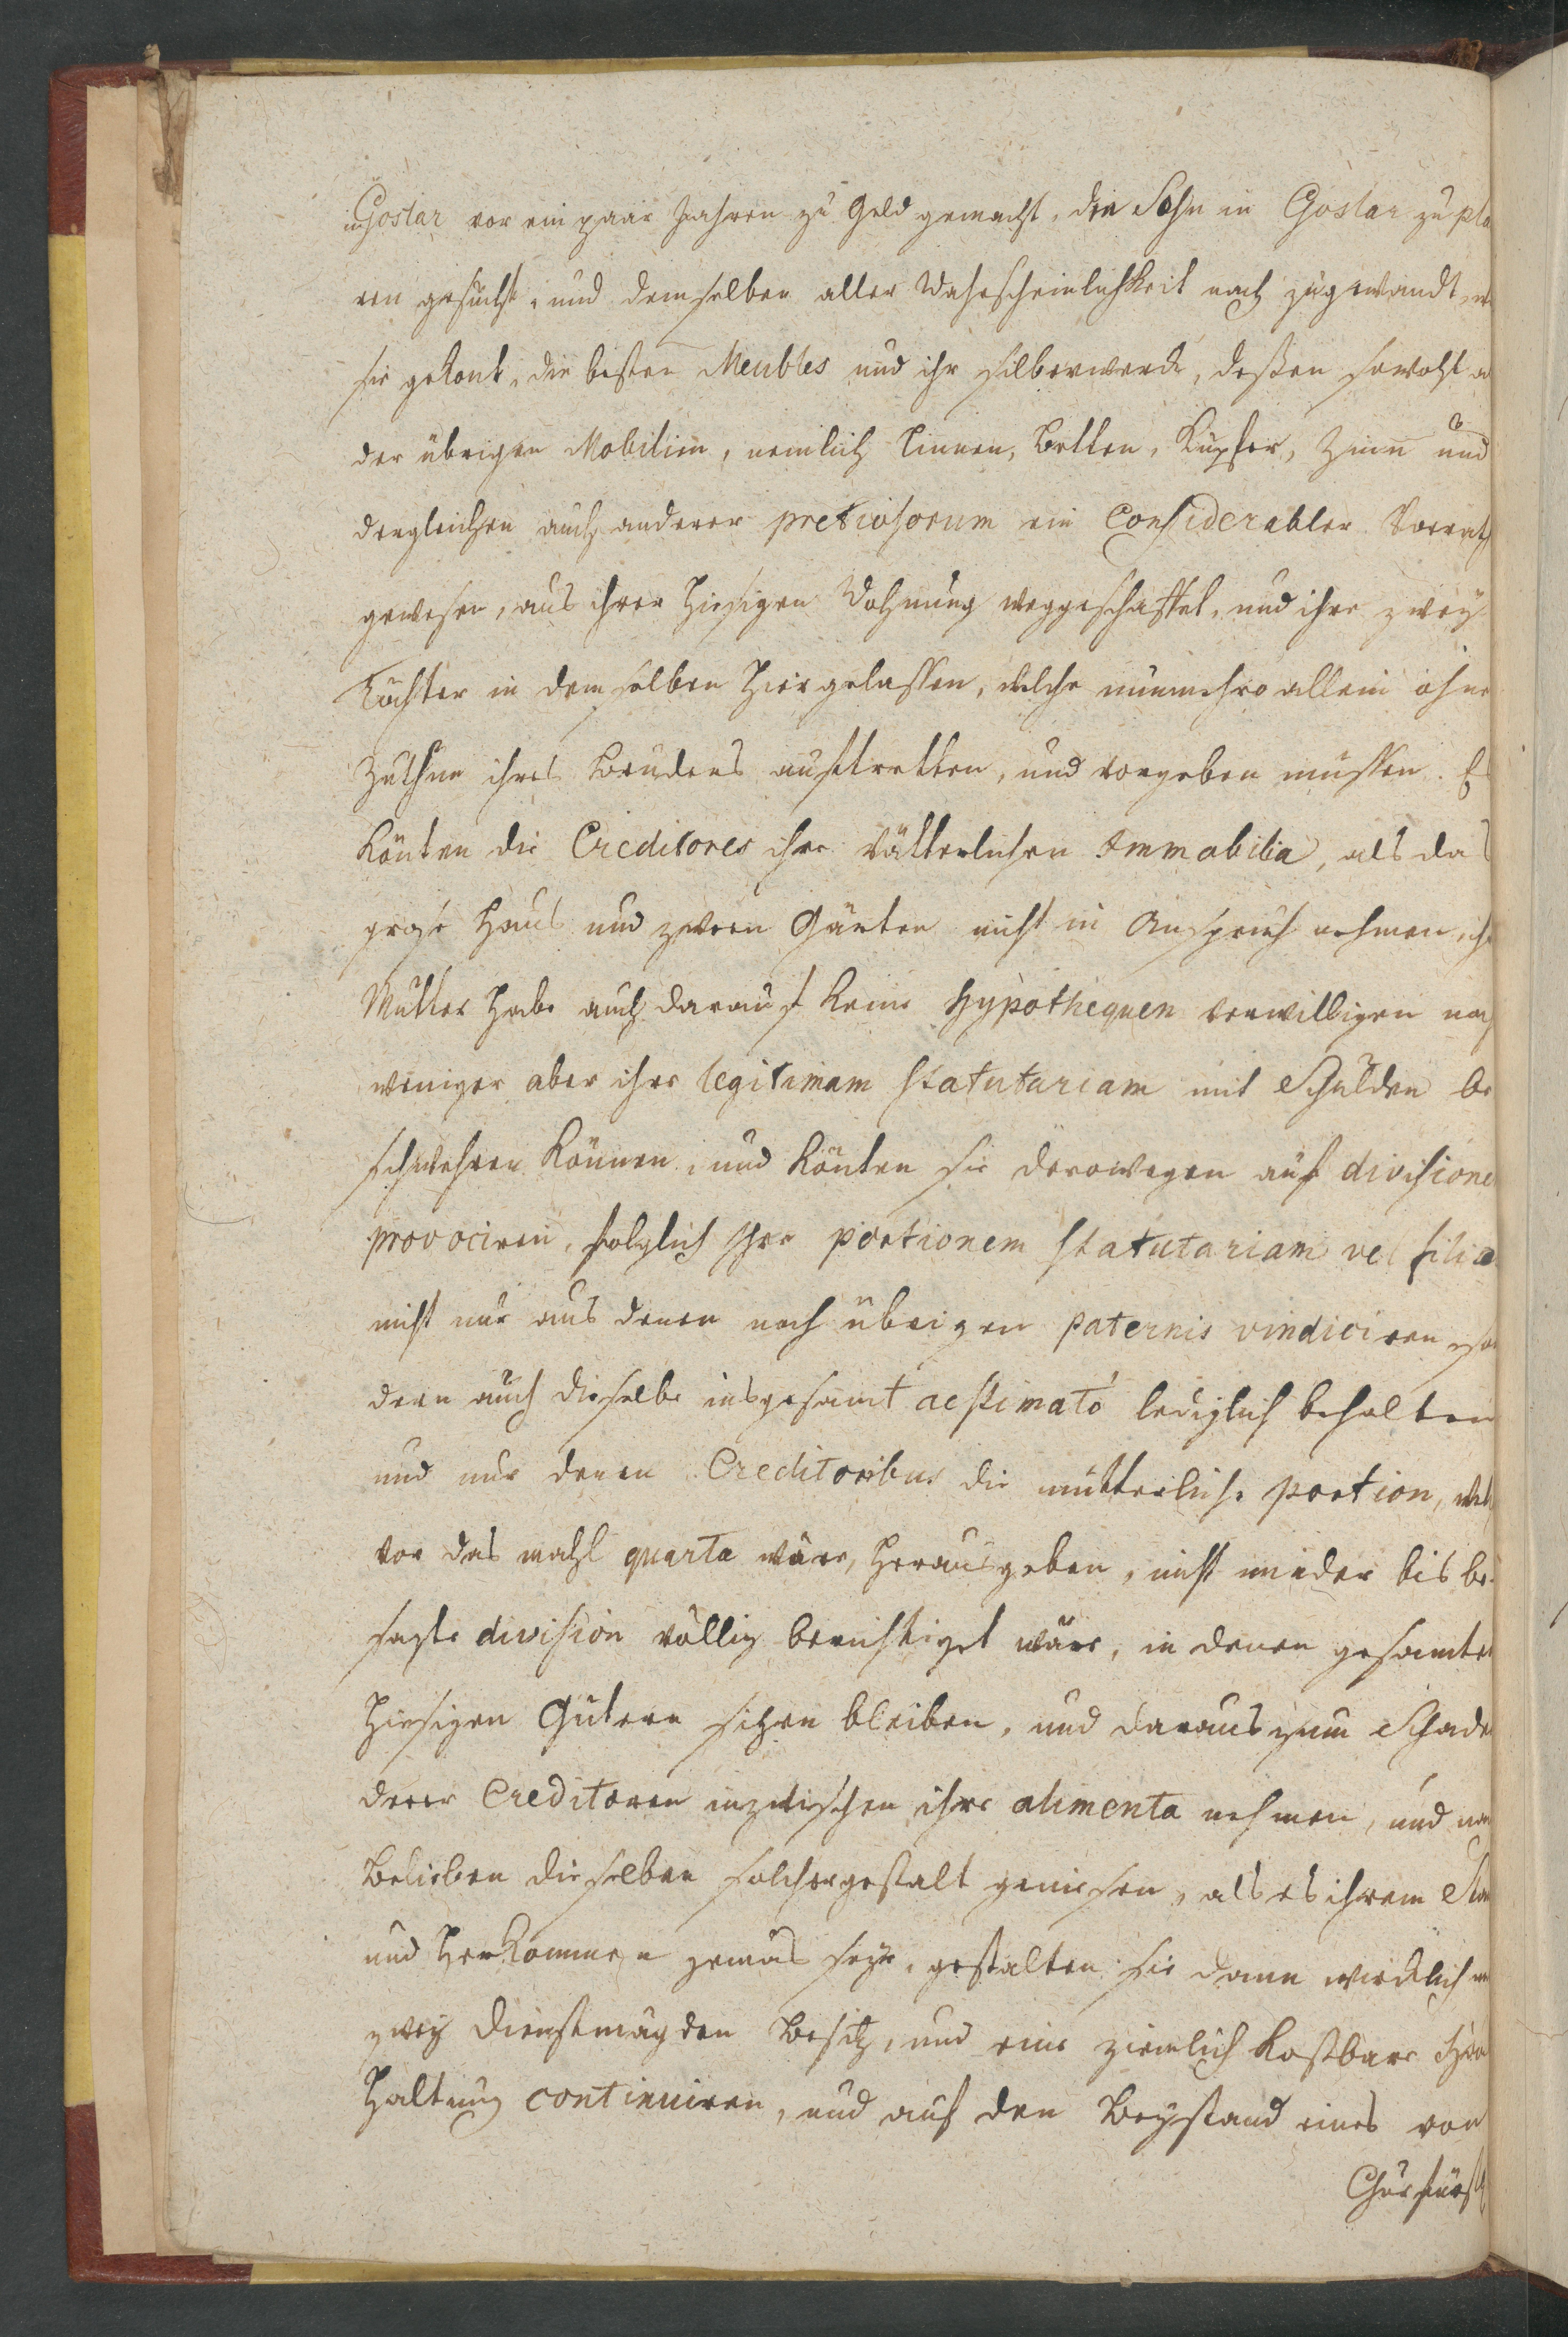 in Goslar vor ein paar Jahren zu Geld gemacht, den Sohn in Goslar zu pla
ren gesucht, und demselben aller Wahrscheinlichkeit nach zugewandt, w
sie gekont, die besten Meubles und ihr Silberwerck, deßen sowohl a
der übrigen Mobilien, nemlich Linnen, Betten, Kupfer, Zinn und
dergleichen auch anderer pretiosorum ein Considerabler Vorrath
gewesen, aus ihrer hiesigen Wohnung weggeschaffet, und ihre zwey
Töchter in demselben hier gelassen, welche nunmehro allein ohne
Zuthun ihres Bruders aufftretten, und vorgeben müssen. Es
könten die Creditores ihre vätterlichen Immobilia, als das
große Haus und zween Gärten nicht in Anspruch nehmen, ihr
Mutter habe auch darauf keine Hypothequen verwilligen noch
weniger aber ihre legitimam statutariam mit Schulden be
schwehren können, und könten sie derowegen auf divisione
provociren, folglich ihre portionem statutariam vel filia
nicht nur aus denen noch übrigen paternis vindiciren, son
dern auch dieselbe insgesamt aestimato lediglich behalten
und nur denen Creditoribus die mütterliche portion, wel
vor das mahl quarta wäre, herausgeben, nicht minder bis be
sagte division völlig berichtiget wäre, in denen gesamten
hiesigen Gütern sitzen bleiben, und daraus zum Schade
derer Creditoren inzwischen ihre alimenta nehmen, und nach
Belieben dieselben solchergestalt geniesen, als es ihrem Stan
und Herkommen gemäs seye, gestalten sie dann wircklich m
zwey Dienstmägden Besitz, und eine ziemlich kostbare Haus
haltung continuiren, und auf den Beystand eines von
Churfürstl